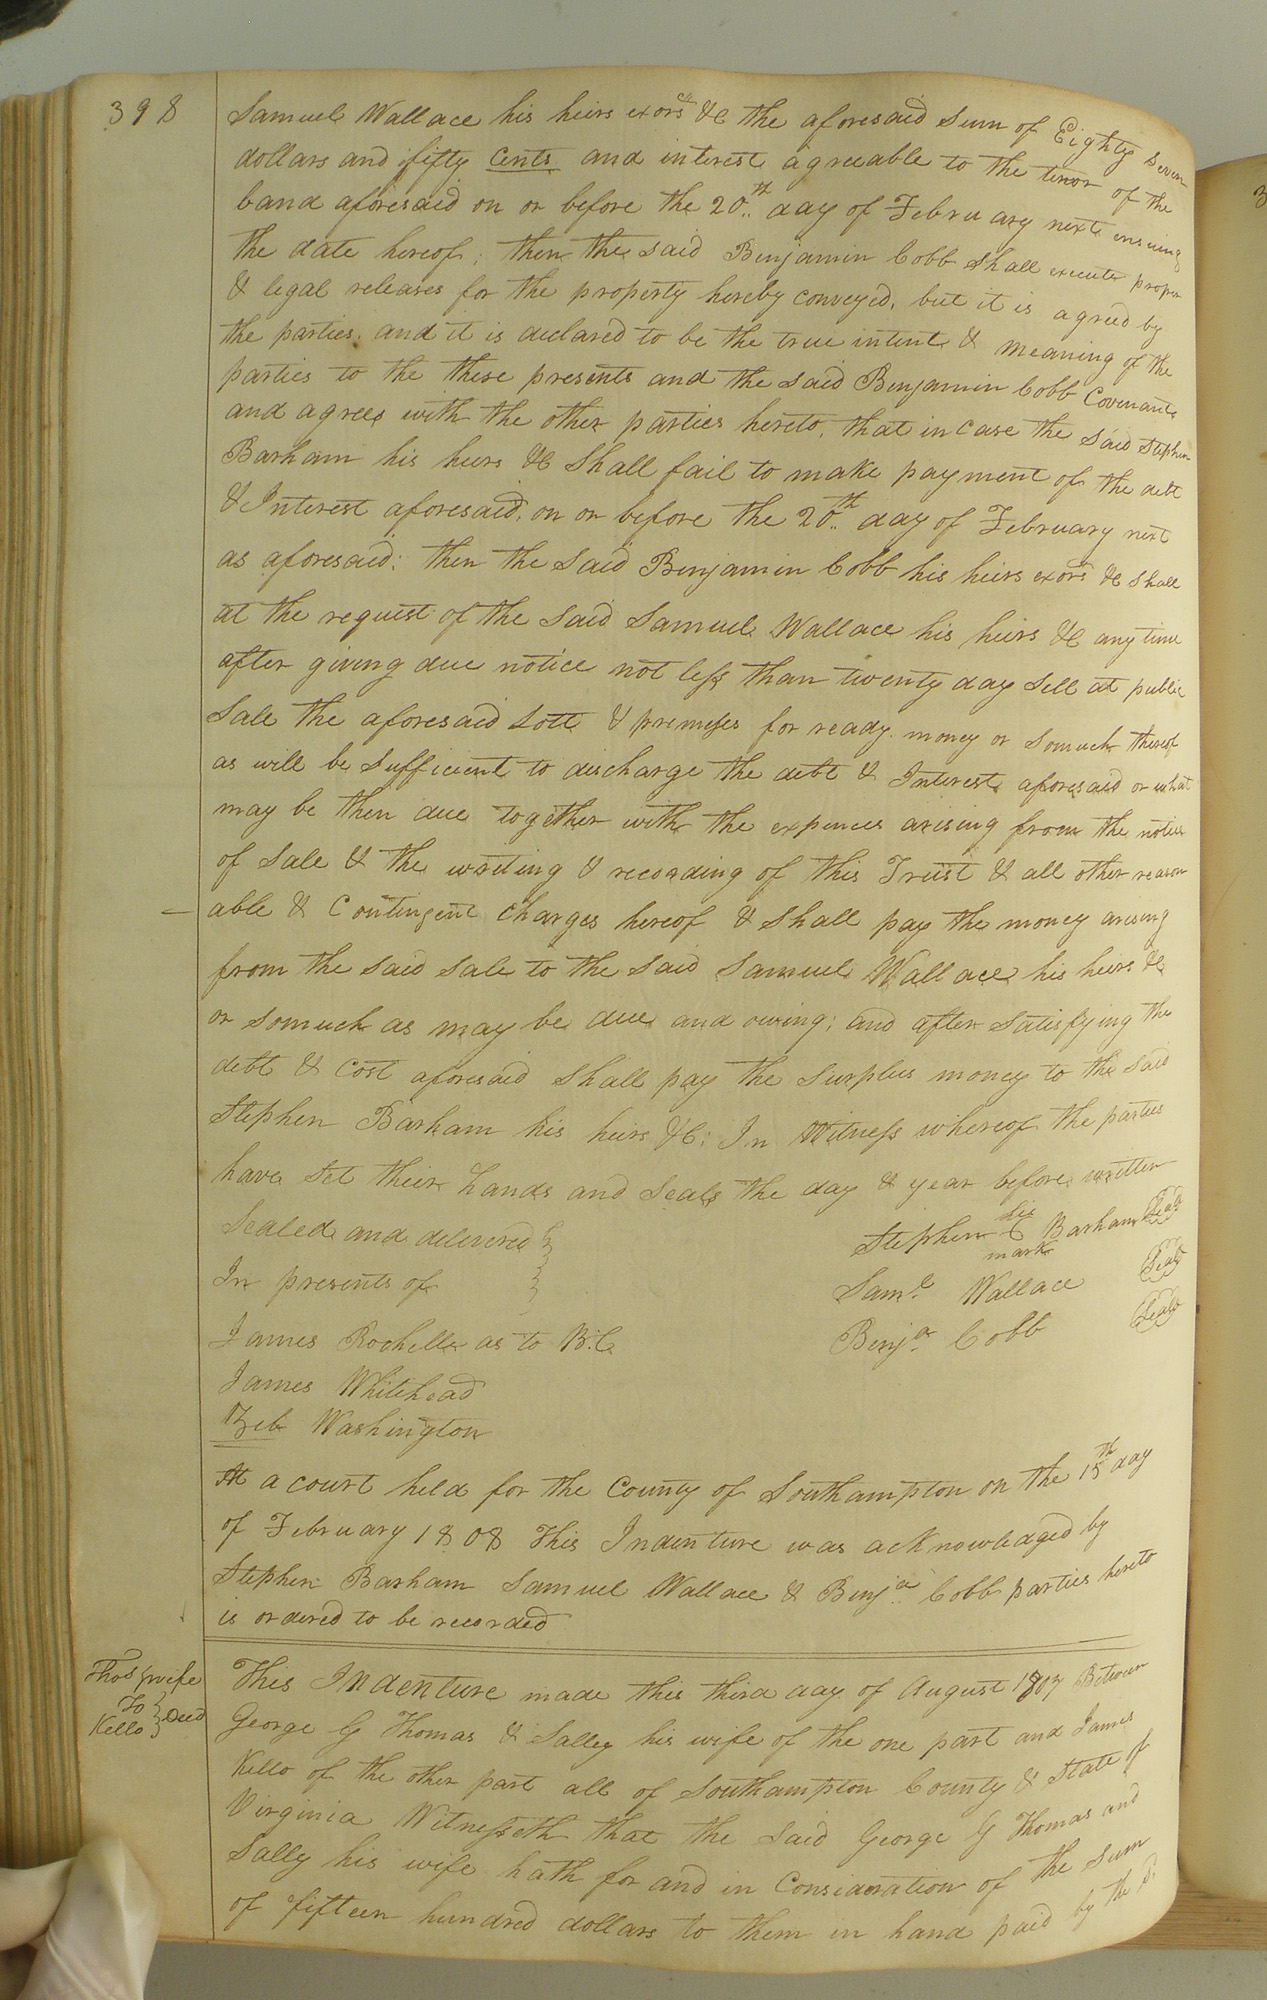 398
Samuel Wallace his heirs exors &C the aforesaid Sum of Eighty Seven
dollars and fifty Cents and interest agreeable to the tenor of the
band aforesaid on or before the 20th day of February next ensuing
the date hereof; then the said Benjamin Cobb shall execute proper
& legal releases for the property hereby conveyed, but it is agreed by
the parties, and it is declared to be the true intent & meaning of the
parties to the these presents and the said Benjamin Cobb Covenants
and agrees with the other parties hereto, that in case the said Stephen
Barham his heirs &C shall fail to make payment of the debt
& Interest aforesaid, on or before the 20th day of February next
as aforesaid; then the said Benjamin Cobb his heirs exors &C shall
at the request of the said Samuel Wallace his heirs &C any time
after giving due notice not less than twenty day sell at public
Sale the aforesaid Lott & premises for ready money or somuch thereof
as will be sufficient to discharge the debt & Interest aforesaid or what
may be then due together with the expences arising from the notice
of sale & the writing & recording of this Trust & all other reason
able & Contingent Charges hereof & shall pay the money arising
from the said sale to the said Samuel Wallace his heirs &C
or somuch as may be due and owing; and after satisfying the
debt & Cost aforesaid shall pay the surplus money to the said
Stephen Barham his heirs &C: In Witness whereof the parties
have set their hands and seals the day & year before written
Sealed and delivered
In presents of
James Rochelle as to B.C.
James Whitehead
Washington
Stephen his mark Barham Seal
Saml Wallace Seal
Benja Cobb Seal
At a court held for the County of Southampton on the 15th day
of February 1808 This Indenture was acknowledged by
Stephen Barham Samuel Wallace & Benja Cobb parties hereto
is ordered to be recorded
Thos & wife
To
Kello
Deed
This Indenture made this third day of August 1807 Between
George G Thomas & Salley his wife of the one part and James
Kello of the other part all of Southampton County & State of
Virginia Witnesseth that the said George G Thomas and
Sally his wife hath for and in Consideration of the sum
of fifteen hundred dollars to them in hand paid by the sd